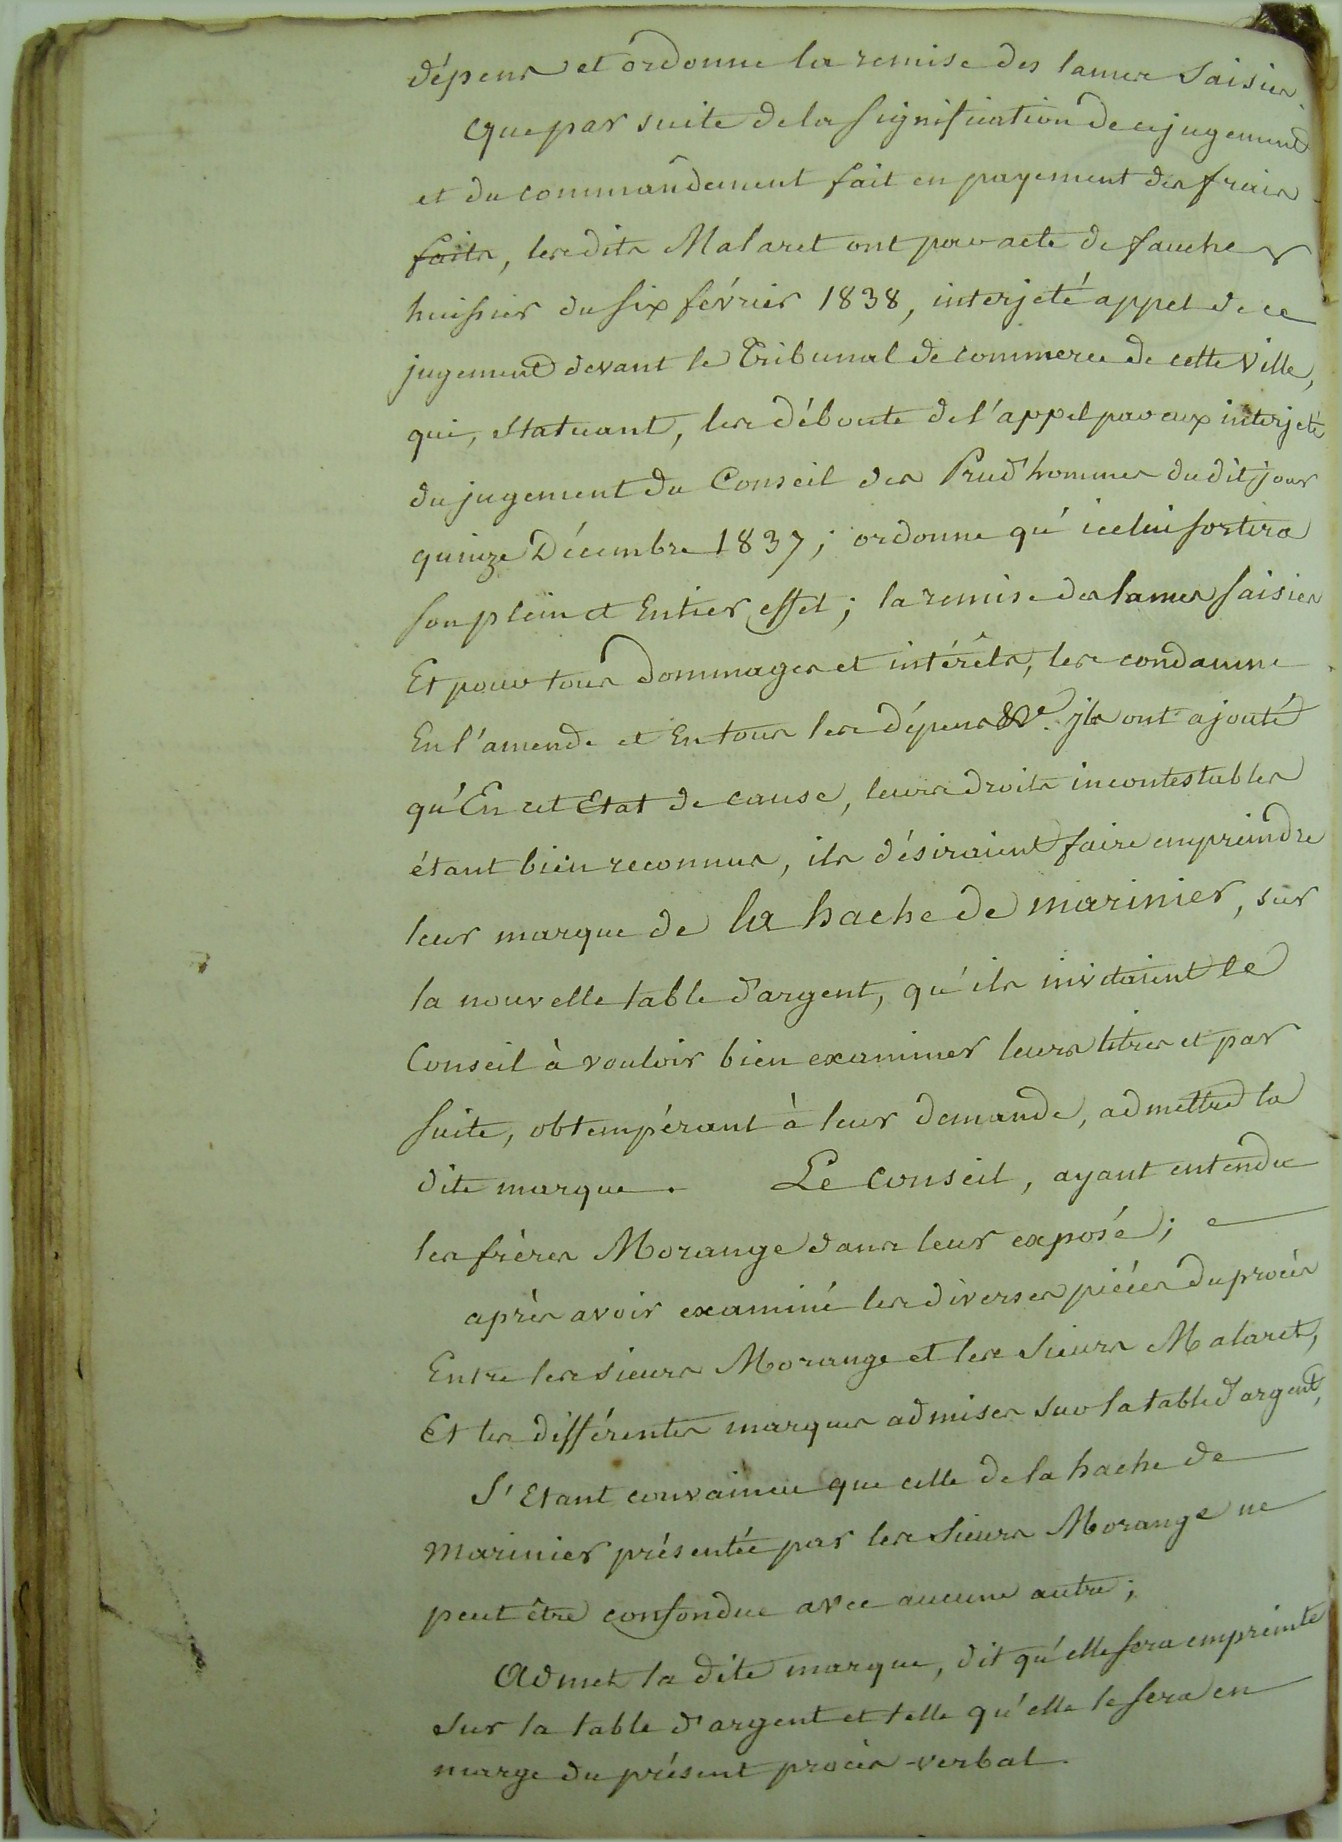 dépens et ordonne la remise des lames saisies.
que par suite de la signification de ce jugement
et du commandement fait en payement des frais
faits, lesdits Malaret ont par acte de fauche
huissier du six février 1838, interjeté appel de ce
jugement devant le Tribunal de commerce de cette ville,
qui, statuant, les déboute de l'appel par eux interjeté
du jugement du Conseil des Prud'hommes du dit jour
quinze Décembre 1837; ordonne qu'icelui sortira
son plein et Entier effet; la remise des lames saisies
Et pour tous dommages et intérêts, les condamne
En l'amende et En tous les dépens &ª. ils ont ajouté
qu'En cet Etat de cause, leurs droits incontestables
étant bien reconnus, ils désiraient faire empreindre
leur marque de la hache de marinier, sur
la nouvelle table d'argent, qu'ils invitaient le
Conseil à vouloir bien examiner leurs titres et par
suite, obtempérant à leur demande, admettre la
dite marque. Le Conseil, ayant entendu
les frères Morange dans leur exposé;
après avoir examiné les diverses pièces du procès
Entre les sieurs Morange et les sieurs Malaret,
Et les différentes marques admises sur la table d'argent,
S'Etant convaincu que celle de la hache de
marinier présentée par les sieurs Morange ne
peut être confondue avec aucune autre;
Admet la dite marque, dit qu'elle sera empreinte
sur la table d'argent et telle qu'elle le sera en
marge du présent procès-verbal.